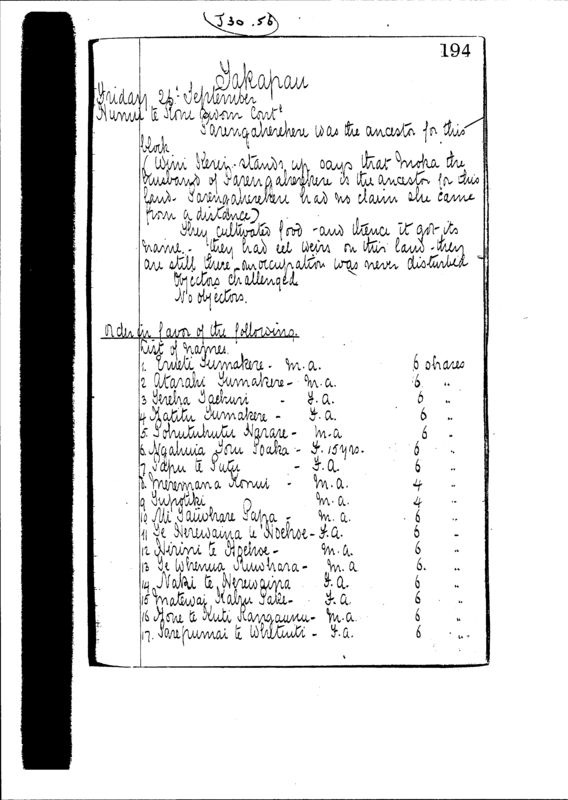 J30.56
194
Takapau
Friday 26th September
Hunui te Kone sworn Contd
Tarengaherehere was the ancestor for this
block
(Wini Kerei stands up says that Moka the
husband of Tarengaherehere is the ancestor for this
land. Tarengaherehere had no claim she came
from a distance)
They cultivated food - and thence it got its
name. They had eel weirs on this land - they
are still there - our occupation was never disturbed
Objectors challenged
No objectors.
Order in favor of the following.
List of names.
1. Tumakere - M.a. 6 shares
2 Atarahi Tumakere - M.a. 6 "
3 Tereha - F.a. 6 "
4 Katitu Tumakere - F.a. 6 "
5. Pohutuhutu Ngrare - M.a 6 "
6. Ngahuia Toru Poaka - F. 15 yrs. 6 "
7. Papu te Putu - F.a. 6 "
8. Meremana Konui - M.a. 4 "
9 M.a. 4 "
10 Tauwhare Papa - M.a. 6 "
11 Te Herewaina te Hoehoe - F.a. 6 "
12 Hirini te Hoehoe - M.a. 6 "
13 Te Whenua - M.a 6. "
14 Naki te Herewaina F.a. 6 "
15 Matewai Take - F.a. 6 "
16 Hone te Kuti Rangaunu - M.a. 6 "
17. Parepumai te - F.a. 6 "